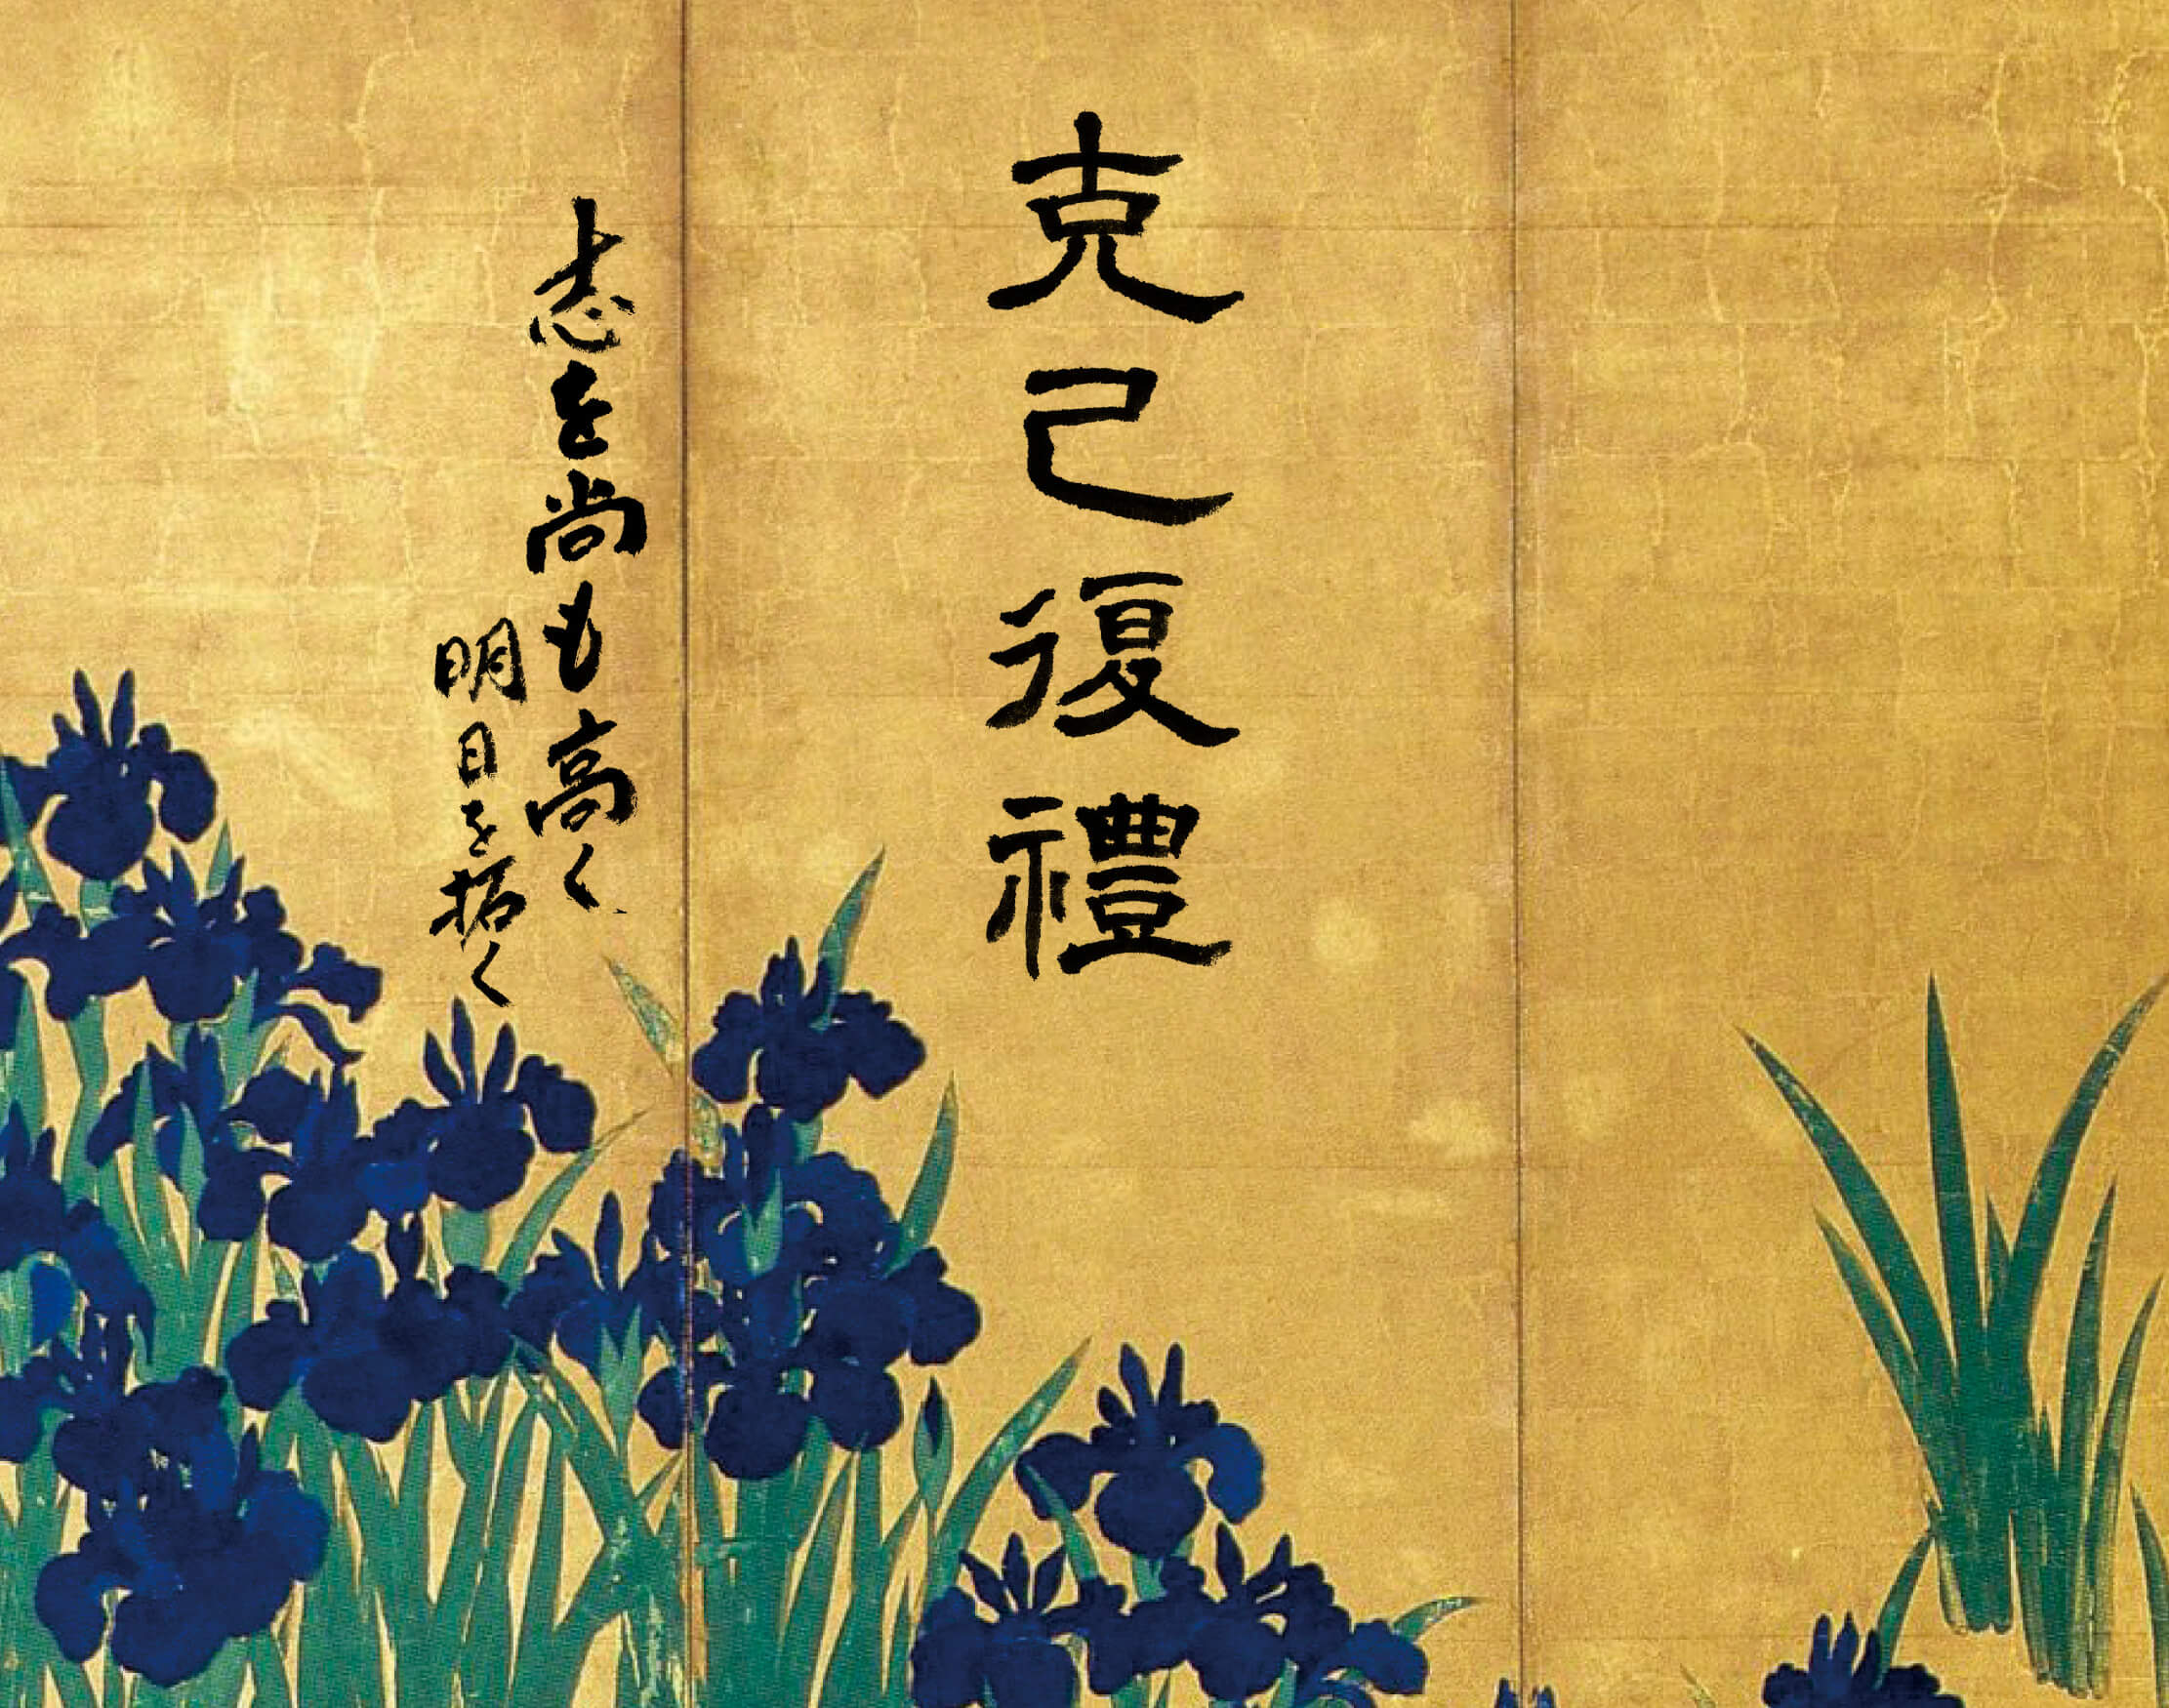 克己復禮
志を尚も高く
明日を拓く